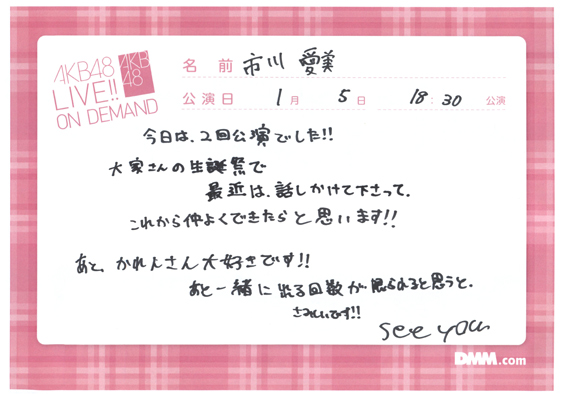 AKB48
LIVE!!
ON DEMAND
AKB
48
名 前 市川 愛美
公演日 1月 5日 18:30 公演
今日は、2回公演でした!!
大家さんの生誕祭で
最近は、話しかけて下さって、
これから仲よくできたらと思います!!
あと、かれんさん大好きです!!
あと一緒に出る回数が限られると思うと、
さみしいです!!
see you
DMM.com